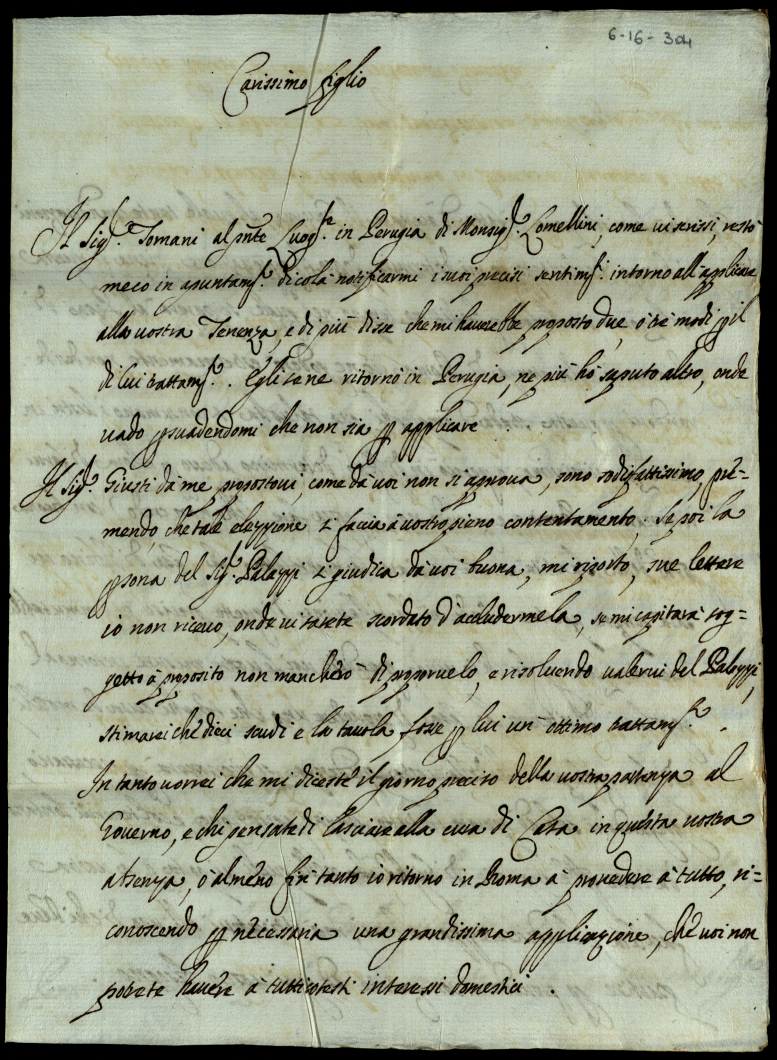 6-16-304
Carissimo figlio
Il Sig.re Tomani al pnte Luog.te in Perugia di Monsig.re Lomellini, come vi scrissi, restò
meco in apuntam.to di colà notificarmi i suoi precisi sentim.ti intorno all'applicare
alla vostra Tenenza, e di più disse che mi haverebbe proposto due, ò tré modi p il
di lui trattam.to. Egli se ne ritornò in Perugia, ne più hò saputo altro, onde
vado psuadendomi che non sia p applicare
Il Sig.r Giusti dà me propostovi, come dà voi non si aprova, sono sodisfattissimo, pre=
mendo, che tale elezzione si faccia à vostro pieno contentamento. Se poi la
psona del Sig.r Palazzi si giudica dà voi buona, mi riporto, sue lettere
io non ricevo, onde vi sarete scordato d'accludermela, se mi capitarà sog=
getto à proposito non mancherò di proporvelo, e risolvendo valervi del Palazzi,
stimarei che dieci scudi e la tavola fosse p lui un ottimo trattam.to.
In tanto vorrei che mi diceste il giorno preciso della vostra partenza al
Governo, e chi pensate di lasciare alla cura di Casa in questa vostra
absenza, ò almeno fin tanto io ritorno in Roma à provedere à tutto, ri=
conoscendo p necessaria una grandissima applicazione, che voi non
potete havere à tutti cotesti interessi domestici.